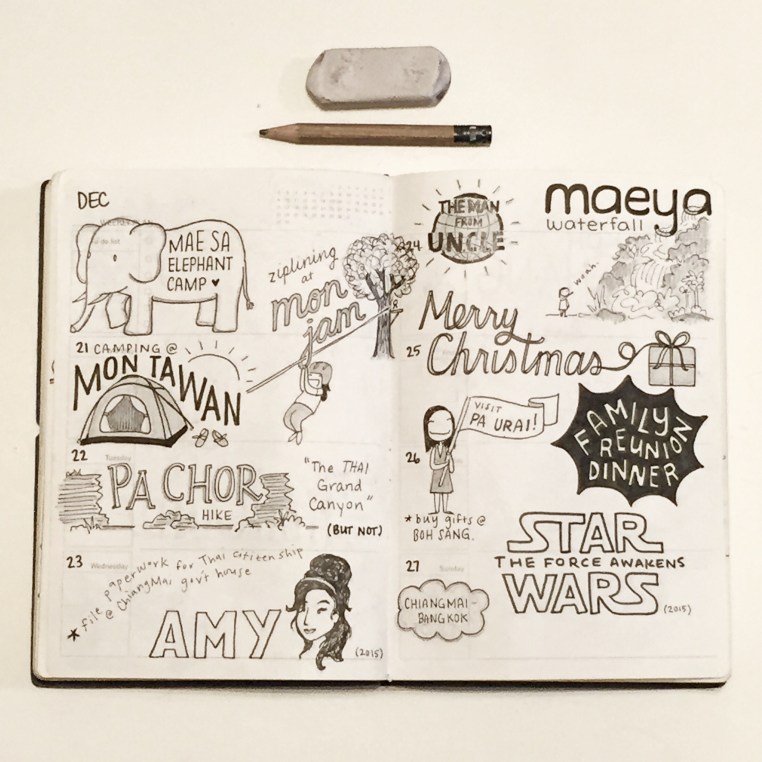 DEC
MAE SA
ELEPHANT
CAMP ♥
ziplining
at
mon
jam
21 CAMPING @
MON TAWAN
22
Tuesday
PA CHOR
HIKE
"The THAI
Grand
Canyon"
(BUT NOT)
23 Wednesday
* file paperwork for Thai citizenship
@ ChiangMai gov't house
AMY
(2015)
24
THE MAN
FROM
UNCLE
maeya
waterfall
woah.
25
Merry
Christmas
26
VISIT
PA URAI!
* buy gifts @
BOH SANG.
FAMILY
REUNION
DINNER
27 Sunday
CHIANGMAI -
BANGKOK
STAR
THE FORCE AWAKENS
WARS
(2015)